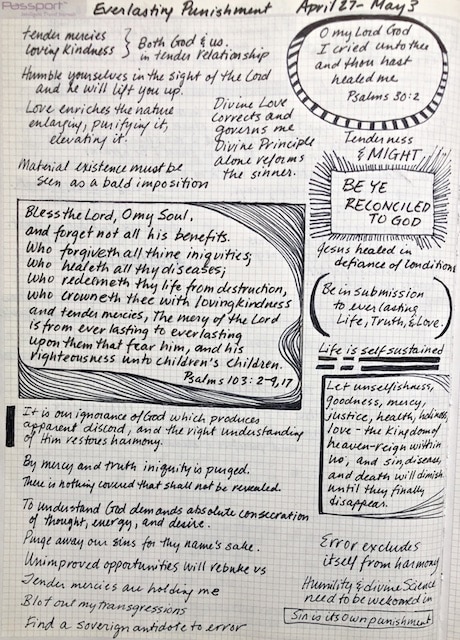 Passport
Everlasting Punishment April 27- May 3
tender mercies
loving kindness } Both God & us
in tender relationship
Humble yourselves in the sight of the Lord
and he will lift you up.
Love enriches the nature
enlarging, purifying it,
elevating it.
Divine Love
corrects and
governs me
Divine Principle
alone reforms
the sinner.
Material existence must be
seen as a bald imposition
O my Lord God
I cried unto thee
and thou hast
healed me
Psalms 30:2
Tenderness
& MIGHT
BE YE
RECONCILED
TO GOD
Jesus healed in
defiance of conditions
Be in submission
to everlasting
Life, Truth, & Love.
Life is self sustained
Bless the Lord, O my Soul,
and forget not all his benefits.
Who forgiveth all thine iniquities;
Who healeth all thy diseases;
Who redeemeth thy life from destruction,
who crowneth thee with lovingkindness
and tender mercies, The mercy of the Lord
is from everlasting to everlasting
upon them that fear him, and his
righteousness unto children's children.
Psalms 103: 2-9, 17
Let unselfishness,
goodness, mercy,
justice, health, holiness,
love - the kingdom of
heaven - reign within
us, and sin, disease,
and death will diminish
until they finally
disappear.
It is our ignorance of God which produces
apparent discord, and the right understanding
of Him restores harmony.
By mercy and truth iniquity is purged.
There is nothing covered that shall not be revealed.
To understand God demands absolute consecration
of thought, energy, and desire.
Purge away our sins for thy name's sake.
Unimproved opportunities will rebuke us
Tender mercies are holding me
Blot out my transgressions
Find a soverign antidote to error
Error excludes
itself from harmony
Humility & divine Science
need to be welcomed in
Sin is its own punishment